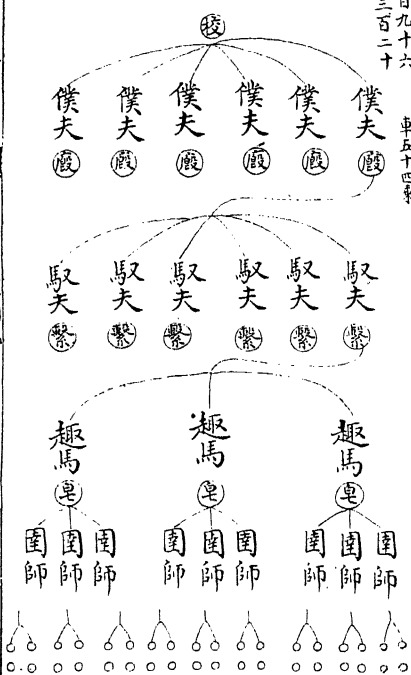 九十六
三百二十
車五十四乘
校
僕夫 僕夫 僕夫 僕夫 僕夫 僕夫
廄 廄 廄 廄 廄 廄
馭夫 馭夫 馭夫 馭夫 馭夫 馭夫
繫 繫 繫 繫 繫 繫
趣馬 趣馬 趣馬
皂 皂 皂
圉師 圉師 圉師 圉師 圉師 圉師 圉師 圉師 圉師